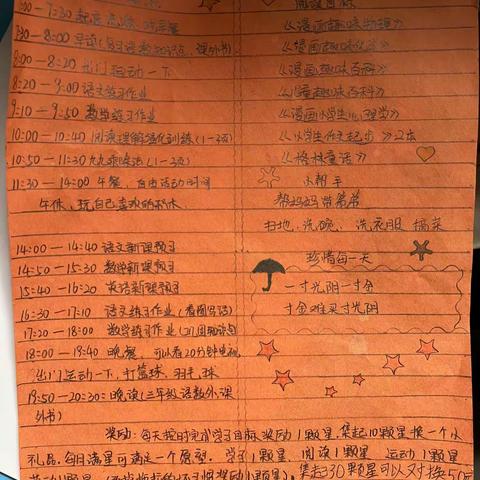 7:30 起床、洗漱、吃早餐
7:30-8:00 早读(
8:00-8:20 出门运动一下
8:20-9:00 语文练习作业
9:10-9:50 数学练习作业
10:00-10:40 阅读理解强化训练(1-3项)
10:50-11:30 九九乘除法(1-3项)
11:30-14:00 午餐、自由活动时间
午休、玩自己喜欢的积木
14:00-14:40 语文新课预习
14:50-15:30 数学新课预习
15:40-16:20 英语新课预习
16:30-17:10 语文练习作业(看图写话)
17:20-18:00 数学练习作业(
18:00-19:40 晚餐、可以看20分钟电视
出门运动一下、打篮球、羽毛球
19:50-20:30= 晚读(三年级语数外课
外书)
阅读目标
《漫画趣味物理》
《漫画趣味化学》
《漫画趣味百科》
《儿童趣味百科》
《漫画小学生心理学》
《小学生作文起步》2本
《格林童话》
小帮手
帮妈妈带弟弟
扫地、洗碗、洗衣服 摘菜
珍惜每一天
一寸光阴一寸金
寸金难买寸光阴
奖励:每天按时完成学习目标,奖励1颗星.集起10颗星换一个小
礼品.每日满星可满足一个愿望. 学习1颗星、阅读1颗星 运动1颗星
奖励1颗星).集起330颗星可以对换50元